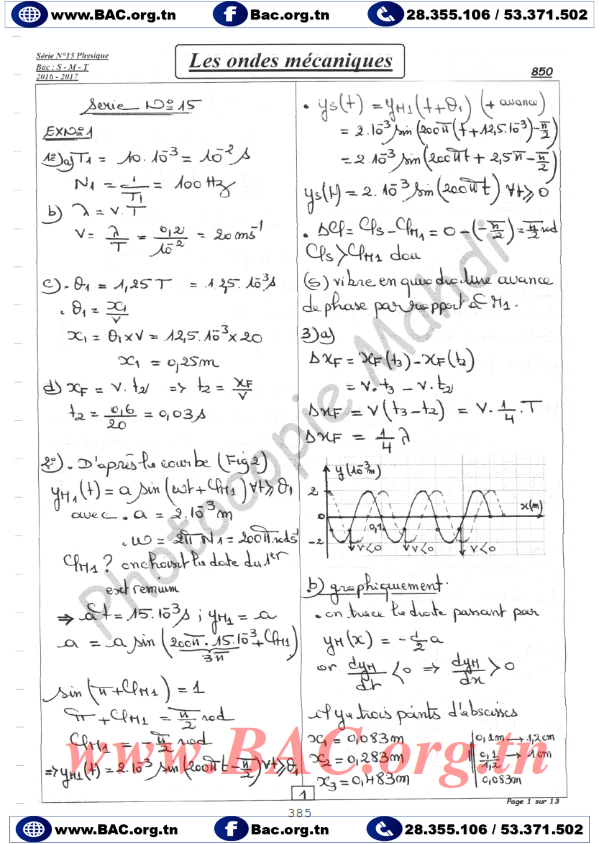 www.BAC.org.tn Bac.org.tn 28.355.106 / 53.371.502
Série N°15 Physique
Bac : S - M - T
2016 - 2017
Les ondes mécaniques
850
Serie N°15
EXN°1
1°) a) T1 = 10.10⁻³ = 10⁻² s
N1 = 1/T1 = 100 Hz
b) λ = V.T
V = λ/T = 0,2/10⁻² = 20 ms⁻¹
c) . θ1 = 1,25 T = 12,5.10⁻³ s
. θ1 = x1/V
x1 = θ1 × V = 12,5.10⁻³ × 20
x1 = 0,25 m
d) xF = V.t2 => t2 = xF/V
t2 = 0,6/20 = 0,03 s
2°) . D'après la courbe (Fig 2)
yM1(t) = a sin(ωt + φM1) ∀t ≥ θ1
avec . a = 2.10⁻³ m
. ω = 2π N1 = 200π rad s⁻¹
φM1 ? on choisit la date du 1er
extremum
=> à t = 15.10⁻³ s ; yM1 = a
a = a sin(200π . 15.10⁻³ + φM1)
3π
sin(π + φM1) = 1
π + φM1 = π/2 rad
φM1 = -π/2 rad
=> yM1(t) = 2.10⁻³ sin(200πt - π/2) ∀t ≥ θ1
. ys(t) = yM1(t + θ1) (+ avance)
= 2.10⁻³ sin(200π(t + 12,5.10⁻³) - π/2)
= 2.10⁻³ sin(200πt + 2,5π - π/2)
ys(t) = 2.10⁻³ sin(200πt) ∀t ≥ 0
. Δφ = φs - φM1 = 0 - (-π/2) = π/2 rad
φs > φM1 dou
(S) vibre en quadrature avance
de phase par rapport à M1.
3) a)
ΔxF = xF(t3) - xF(t2)
= V.t3 - V.t2
ΔxF = V(t3 - t2) = V.1/4.T
ΔxF = 1/4 λ
y(10⁻³m)
2
x(m)
0
0,1
-2
V<0 V<0 V<0
b) graphiquement.
. on trace la droite passant par
yM(x) = -1/2 a
or dyM/dt < 0 => dyM/dx > 0
il y a trois points d'abscisses
x1 = 0,083 m
x2 = 0,283 m
x3 = 0,483 m
0,1m → 1,2cm
0,1/1,2 → 1cm
0,083m
Photocopie Mahdi
www.BAC.org.tn
1
Page 1 sur 13
385
www.BAC.org.tn Bac.org.tn 28.355.106 / 53.371.502